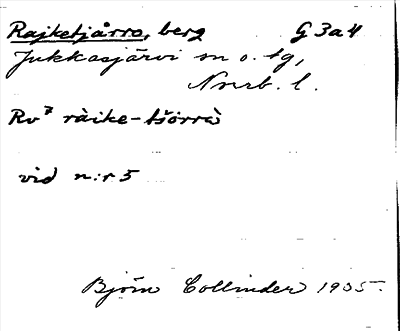 Rajketjårro, berg G 3a4
Jukkasjärvi sn o. tg,
Nnrb. l.
Rv⁷ ràike-tšörrὰ
vid n:r 5
Björn Collinder 1935.